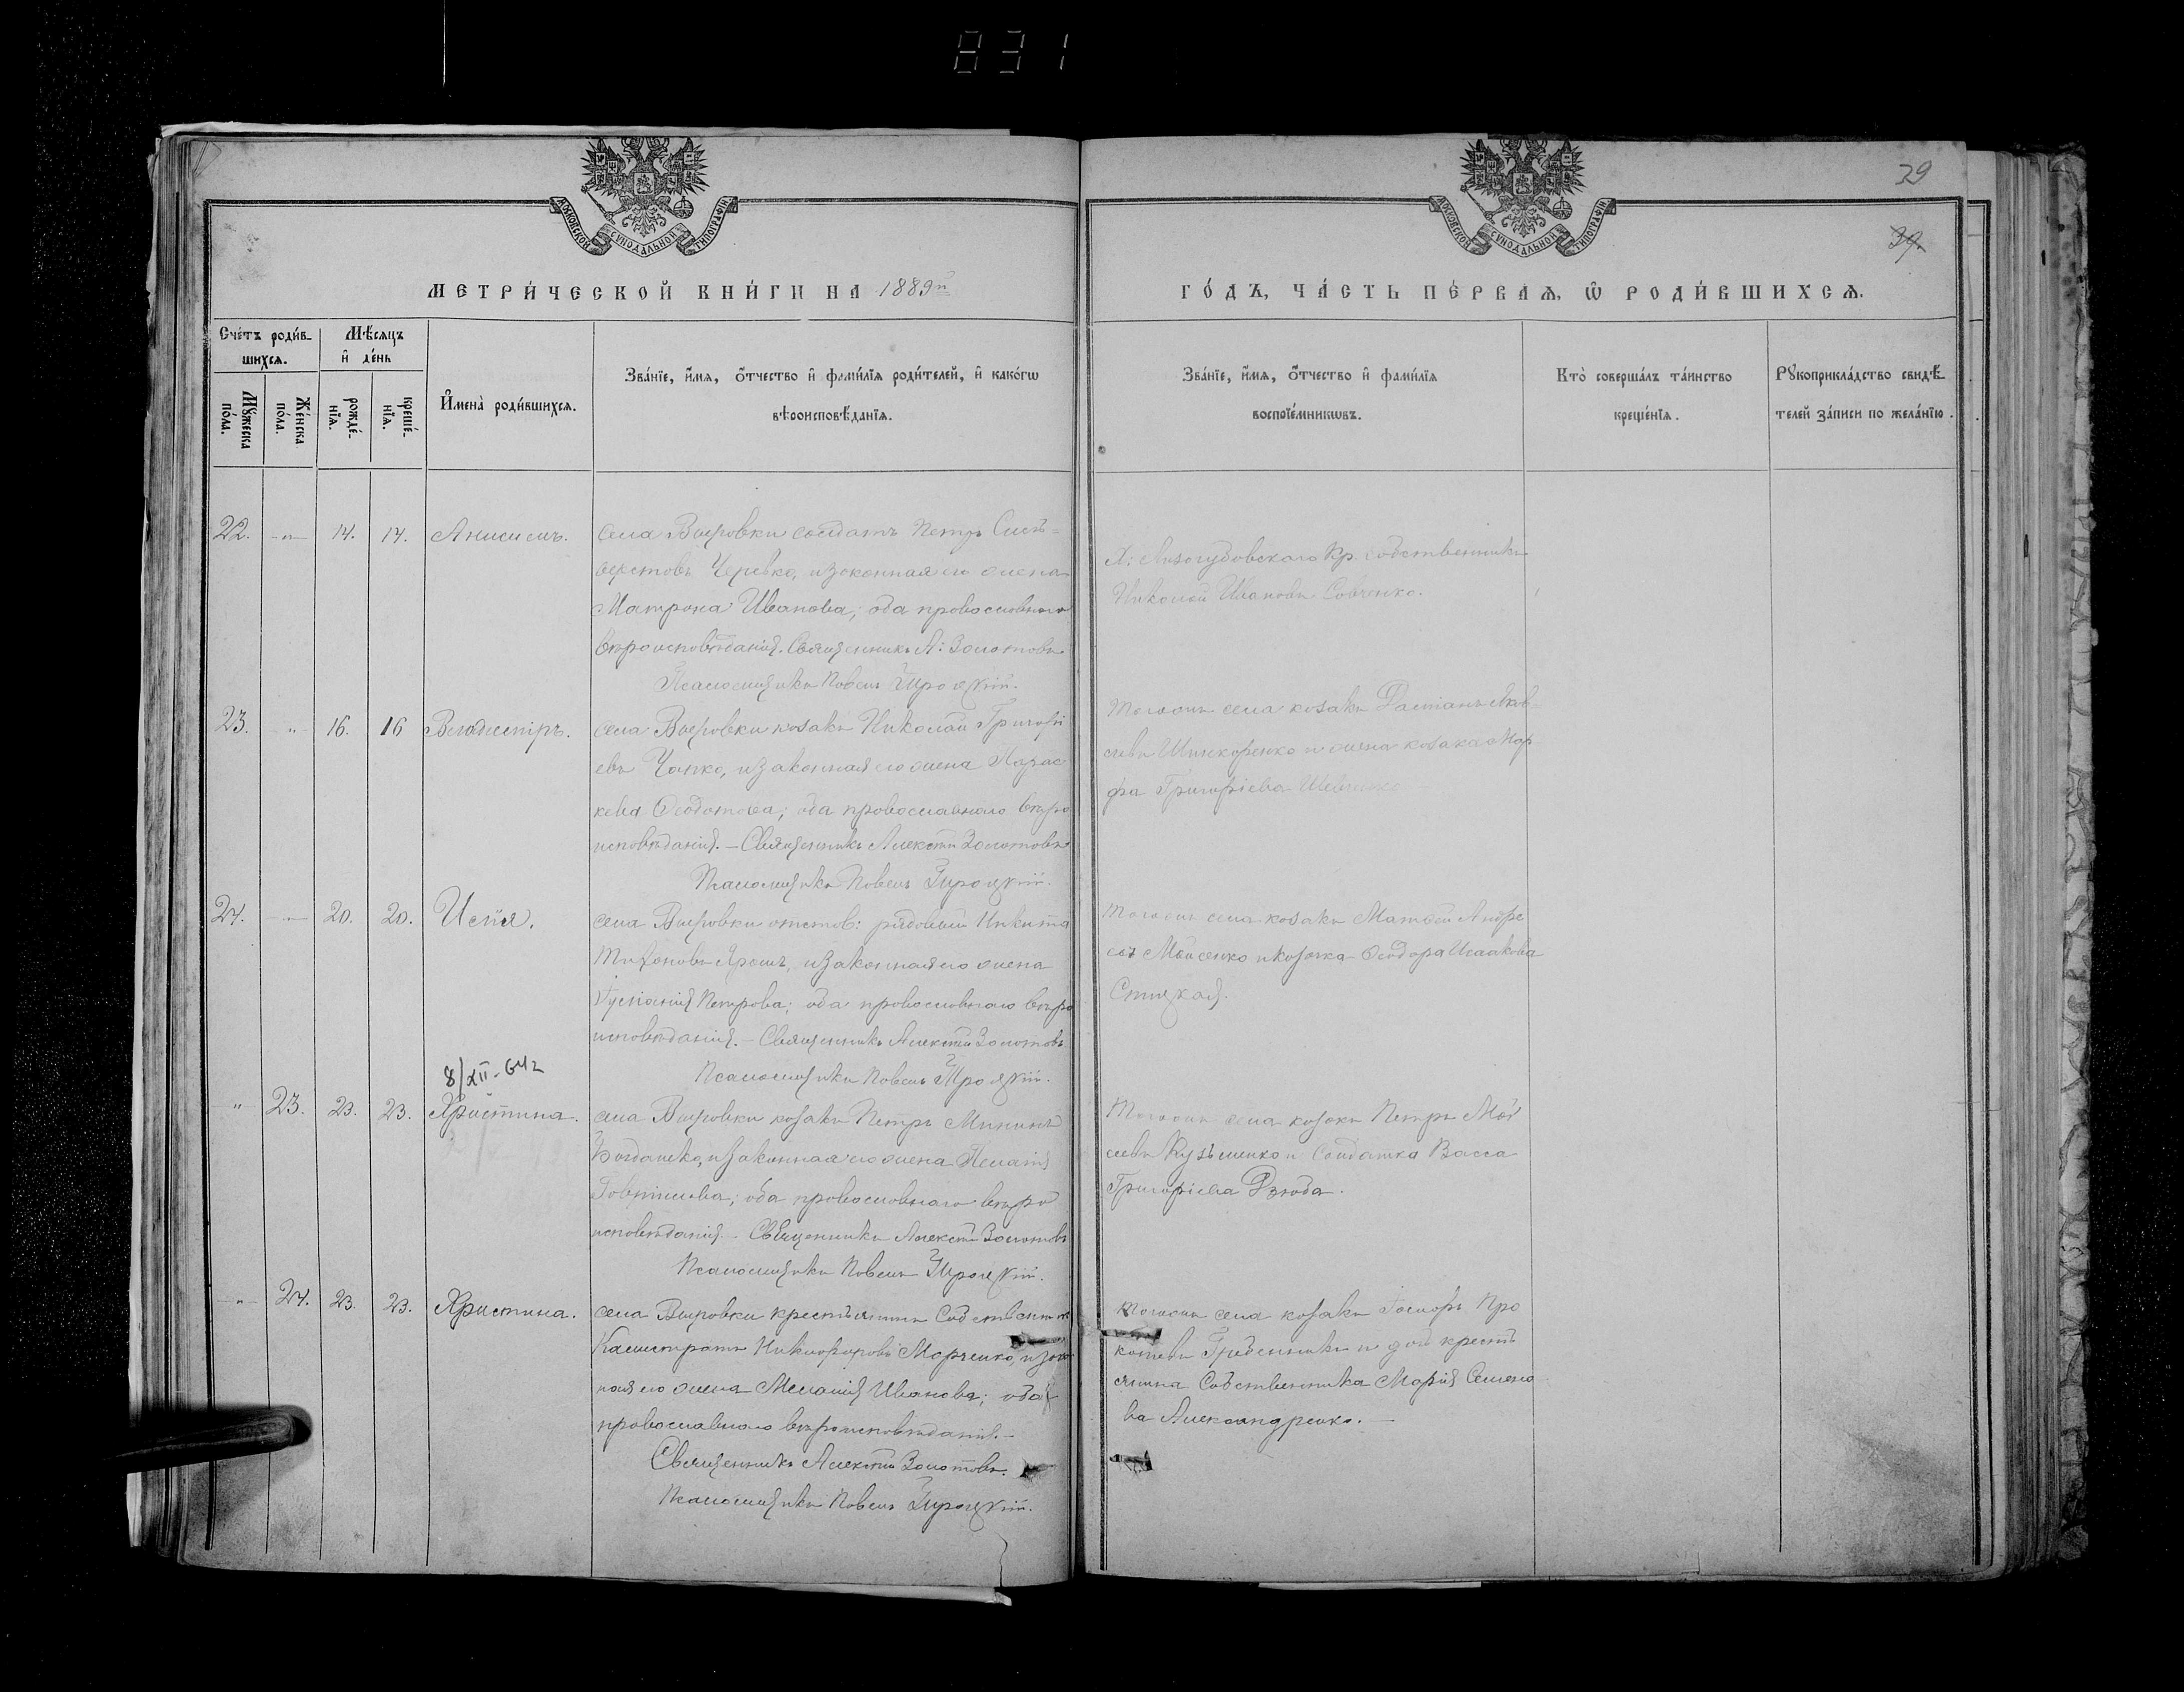 831
39
39.
МОСКОВСКОЙ СѴНОДАЛЬНОЙ ТИПОГРАФІИ
МОСКОВСКОЙ СѴНОДАЛЬНОЙ ТИПОГРАФІИ
МЕТРИ́ЧЕСКОЙ КНИ́ГИ НА 1889й
ГО́ДЪ, ЧА́СТЬ ПЕ́РВАѦ, Ѡ҆ РОДИ́ВШИХСѦ.
Сче́тъ роди́в-
шихсѧ.
Мꙋ́жеска по́ла.
Же́нска по́ла.
Мѣ́сѧцъ
и҆ де́нь
рожде́-нїѧ.
креще́-нїѧ.
И҆мена̀ роди́вшихсѧ.
Зва́нїе, и҆́мѧ, ѻ҆́тчество и҆ фами́лїѧ роди́телей, и҆ како́гѡ
вѣроисповѣ́данїѧ.
Зва́нїе, и҆́мѧ, ѻ҆́тчество и҆ фами́лїѧ
воспрїе́мникѡвъ.
Кто̀ соверша́лъ та́инство
креще́нїѧ.
Рꙋкоприкла́дство свидѣ́-
телей за́писи по жела́нїю.
22. -„- 14. 14. Анисимъ.
села Вировки солдатъ Петръ Силь-
верстовъ Черевко, и законная его жена
Матрона Иванова; оба православнаго
вѣроисповѣданія. Священникъ А: Золотовъ
Псаломщикъ Павелъ Троцкій.
Х: Лизогубовскаго Кр. собственникъ
Николай Ивановъ Савченко.
23. „ 16. 16 Владиміръ.
села Вировки козакъ Николай Григорі
евъ Чапко, и законная его жена Парас
кева Ѳеодотова; оба православнаго вѣро
исповѣданія. — Священникъ Алексѣй Золотовъ
Псаломщикъ Павелъ Троцкій.
Тогоже села козакъ Даміанъ Яков-
левъ Шинкоренко и жена козака Мар
фа Григоріева Шевченко
24. -„- 20. 20. Исаія.
села Вировки отстав: рядовый Никита
Тихоновъ Ярошъ, и законная его жена
Іуліанія Петрова; оба православнаго вѣро
исповѣданія. — Священникъ Алексѣй Золотовъ
Псаломщикъ Павелъ Троцкій.
Тогоже села козакъ Матвѣй Андре
евъ Моисенко и козачка Ѳеодора Исаакова
8/XII-
-„- 23. 23. 23. Христина.
села Вировки козакъ Петръ Мининъ
Богданко, и законная его жена Пелагія
оба православнаго вѣро
исповѣданія. — Священникъ Алексѣй Золотовъ
Псаломщикъ Павелъ Троцкій.
Тогоже села козакъ Петръ Мой
сеевъ Кузьменко и Солдатка Васса
Григоріева Дзюба.
-„- 24. 23. 23. Христина.
села Вировки крестьянинъ Собственникъ
Калистратъ Никифоровъ Марченко, и закон
ная его жена Меланія Иванова; оба
православнаго вѣроисповѣданія. —
Священникъ Алексѣй Золотовъ.
Псаломщикъ Павелъ Троцкій.
тогоже села козакъ Про
копіевъ Гребенникъ и дочь кресть
янина Собственника Марія Семено
ва Александренко. —